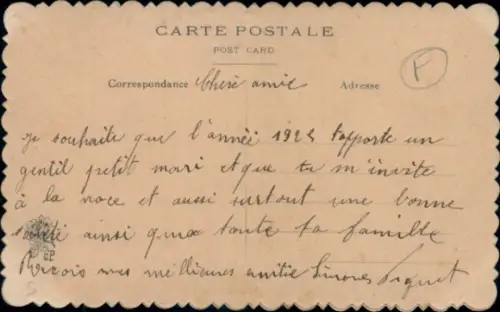 CARTE POSTALE
POST CARD
Correspondance Cheré amie Adresse
F
je souhaite que l'année 192 t'apporte un
gentil petit mari et que tu m'invite
à la noce et aussi surtout une bonne
santé ainsi qu'a toute ta famille
Recois mes meilleures amitie Simone Paquet
EP